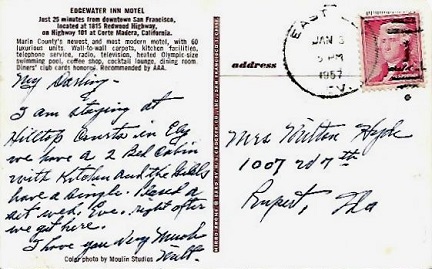 EDGEWATER INN MOTEL
Just 25 minutes from downtown San Francisco,
located at 1815 Redwood Highway,
on Highway 101 at Corte Madera, California.
Marin County's newest and most modern motel, with 60
luxurious units. Wall-to-wall carpets, kitchen facilities,
telephone service, radio, television, heated Olympic-size
swimming pool, coffee shop, cocktail lounge, dining room.
Diners' club cards honored. Recommended by AAA.
My Darling
I am staying at
Hilltop Courts in Ely
we have a 2 Bed Cabin
with Kitchen and the
have a single. I
act wed. Eve. right after
we get here.
I love you Very Much
Milt.
Color photo by Moulin Studios
address
EAST
JAN 3
5 PM
1957
EV.
2¢
Mrs Milton Hyde
1007 7th
Rupert, Ida